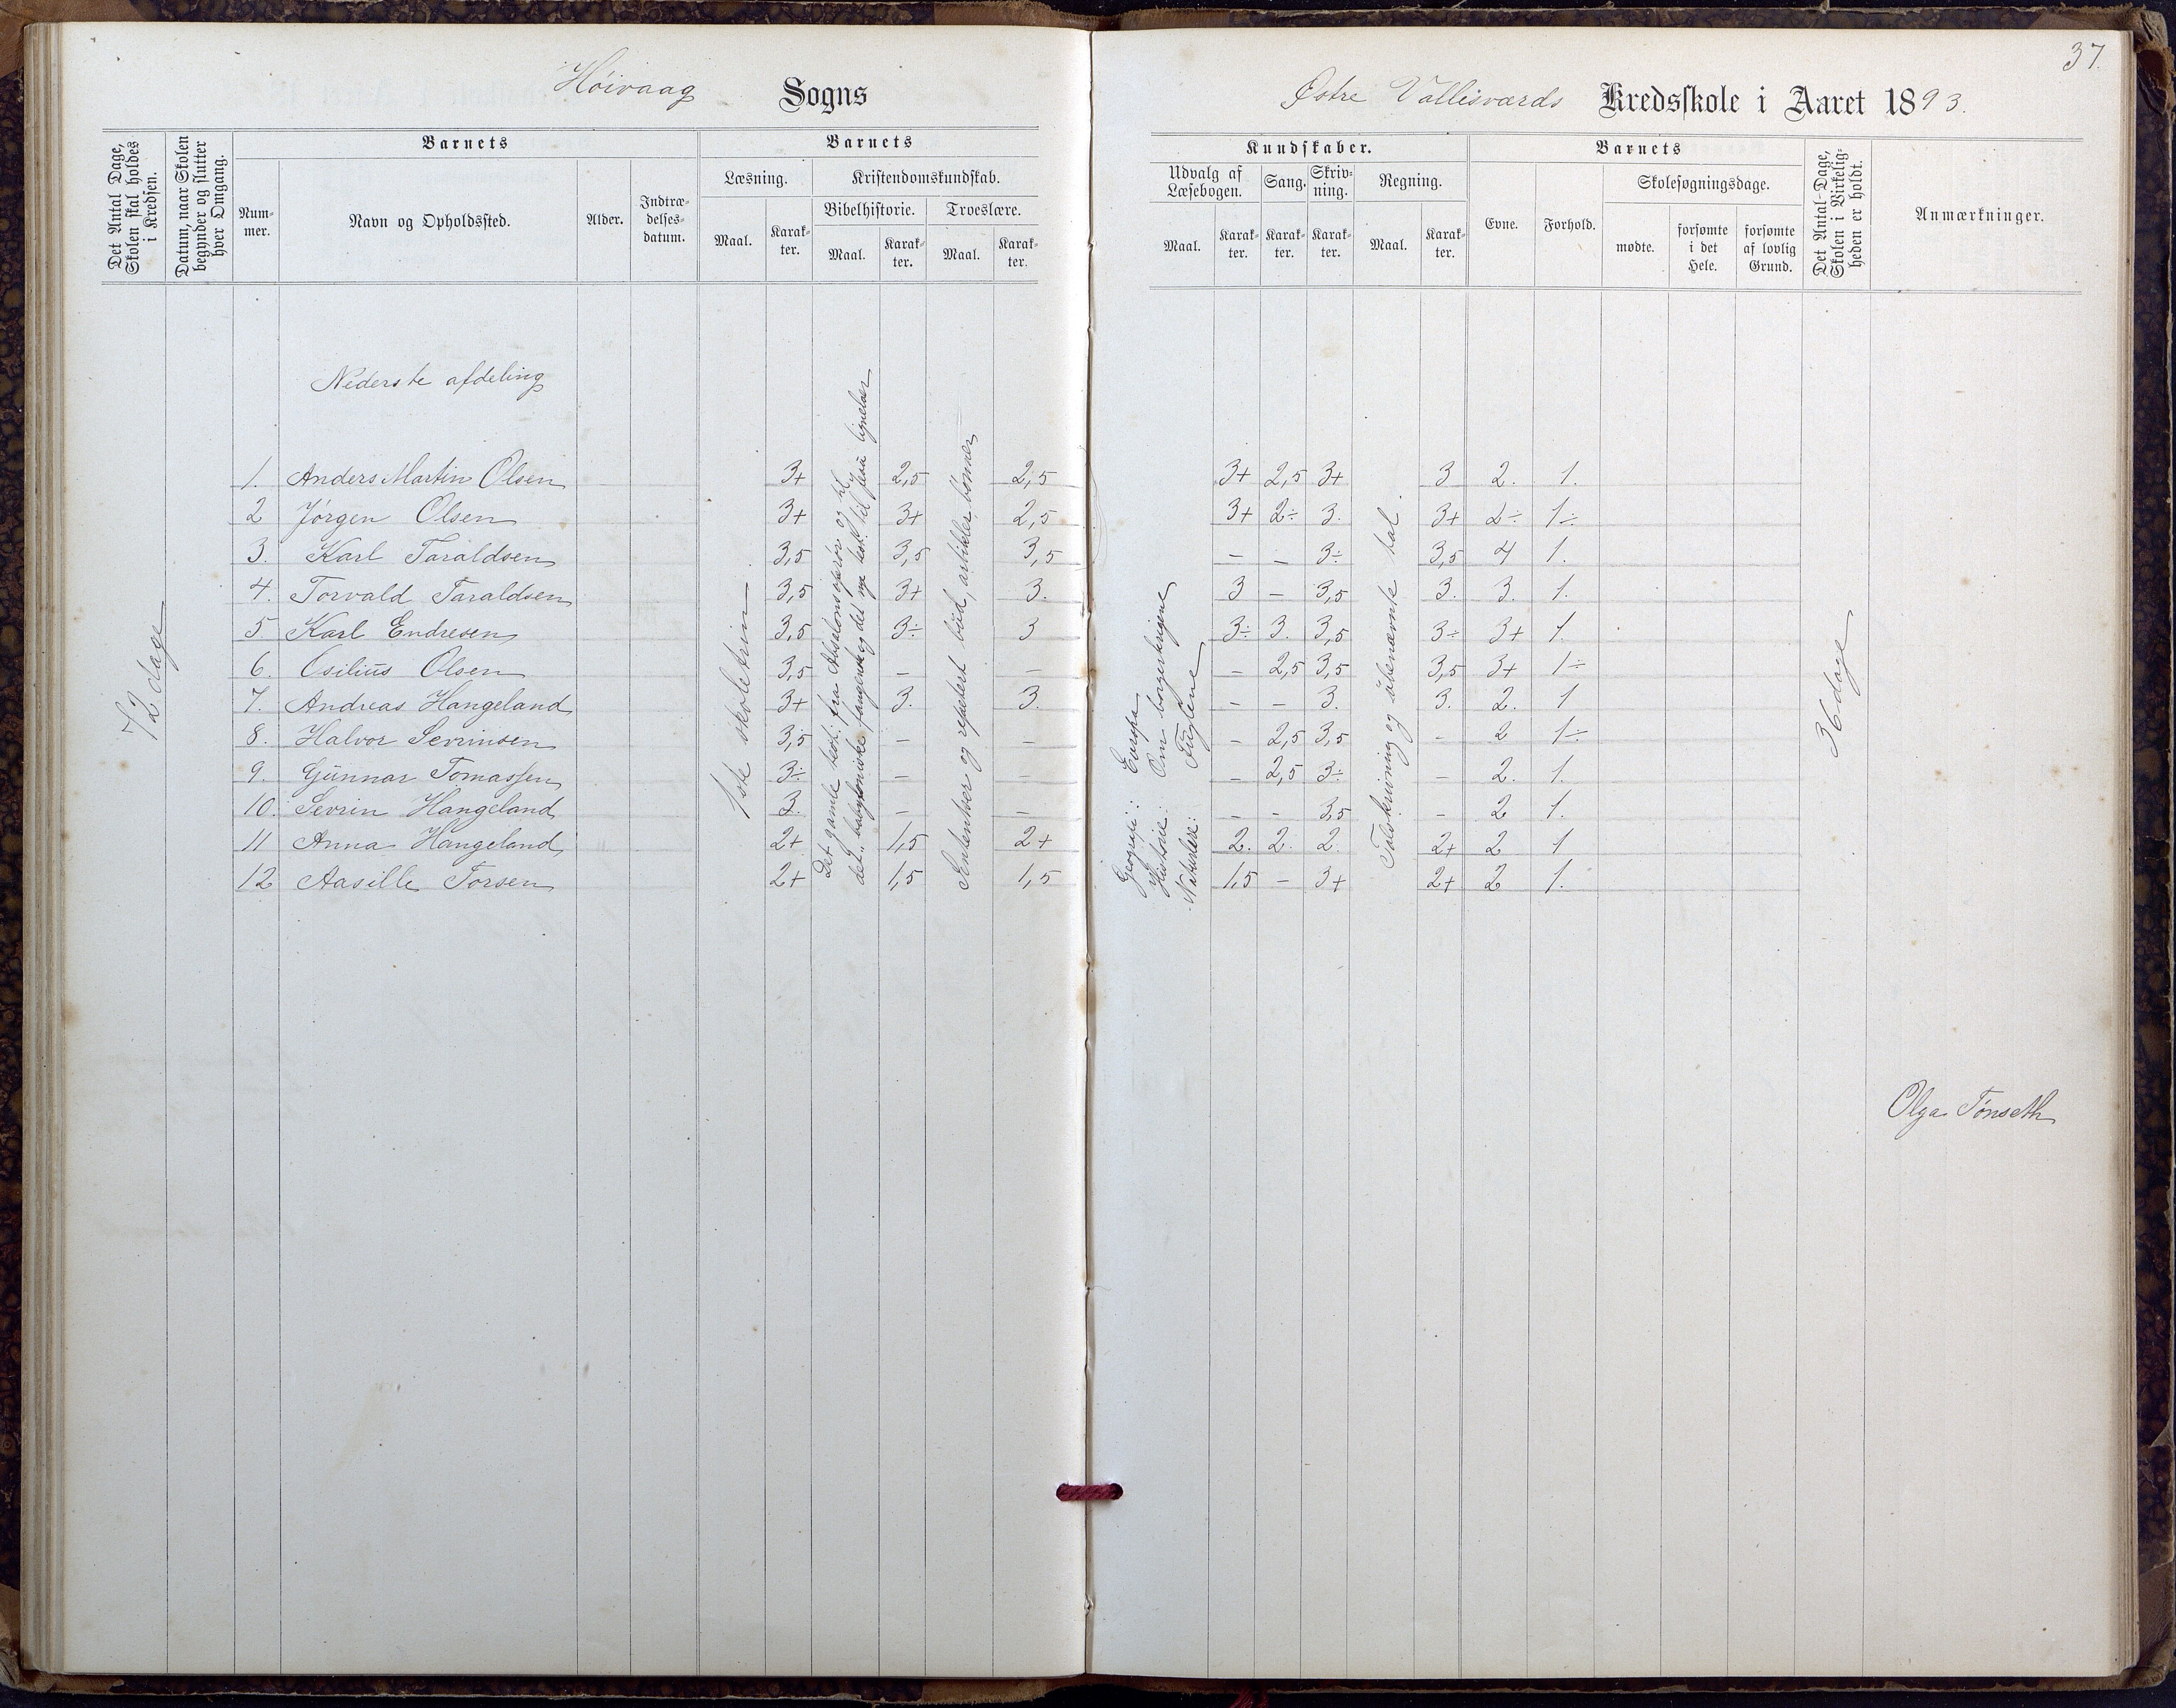 Höivaag Sogns
Østre Vallisværds Kredsskole i Aaret 1893.
37.
Det Antal Dage, Skolen skal holdes i Kredsen.
Datum, naar Skolen begynder og slutter hver Omgang.
Barnets
Nummer.
Navn og Opholdssted.
Alder.
Indtrædelsesdatum.
Barnets
Læsning.
Maal.
Karakter.
Kristendomskundskab.
Bibelhistorie.
Maal.
Karakter.
Troeslære.
Maal.
Karakter.
Kundskaber.
Udvalg af Læsebogen.
Maal.
Karakter.
Sang.
Karakter.
Skrivning.
Karakter.
Regning.
Maal.
Karakter.
Barnets
Evne.
Forhold.
Skolesøgningsdage.
mødte.
forsømte i det Hele.
forsømte af lovlig Grund.
Det Antal Dage, Skolen i Virkeligheden er holdt.
Anmærkninger.
Nederste afdeling
72 dage
1ste skoletrin
Det gamle test: fra Absalons oprør og til
det babyloniske fangensk og det nye test: til Jesu lignelser
og repetert bud, artikler, bønner
Geografi: Europa
Historie: Om borgerkrigene
Naturlære: Fuglene
Talskrivning og ubenævnte tal.
36 dage
1. Anders Martin Olsen 3+ 2,5 2,5 3+ 2,5 3+ 3 2. 1.
2 Jörgen Olsen 3+ 3+ 2,5 3+ 2÷ 3. 3+ 2÷ 1÷
3. Karl Taraldsen 3,5 3,5 3,5 – – 3÷ 3,5 4 1.
4. Torvald Taraldsen 3,5 3+ 3. 3 – 3,5 3. 3. 1.
5 Karl Endresen 3,5 3÷ 3 3÷ 3. 3,5 3÷ 3+ 1.
6. Osilius Olsen 3,5 – – – 2,5 3,5 3,5 3+ 1÷
7. Andreas Hangeland 3+ 3. 3. – – 3. 3. 2. 1
8. Halvor Sevrinsen 3,5 – – – 2,5 3,5 – 2 1÷
9. Gunnar Tomassen 3÷ – – – 2,5 3÷ – 2. 1.
10. Sevrin Hangeland 3. – – – – 3,5 – 2 1.
11 Anna Hangeland 2+ 1,5 2+ 2. 2. 2. 2+ 2 1
12 Aasille Torsen 2+ 1,5 1,5 1,5 – 3+ 2+ 2 1.
Olga Tönseth